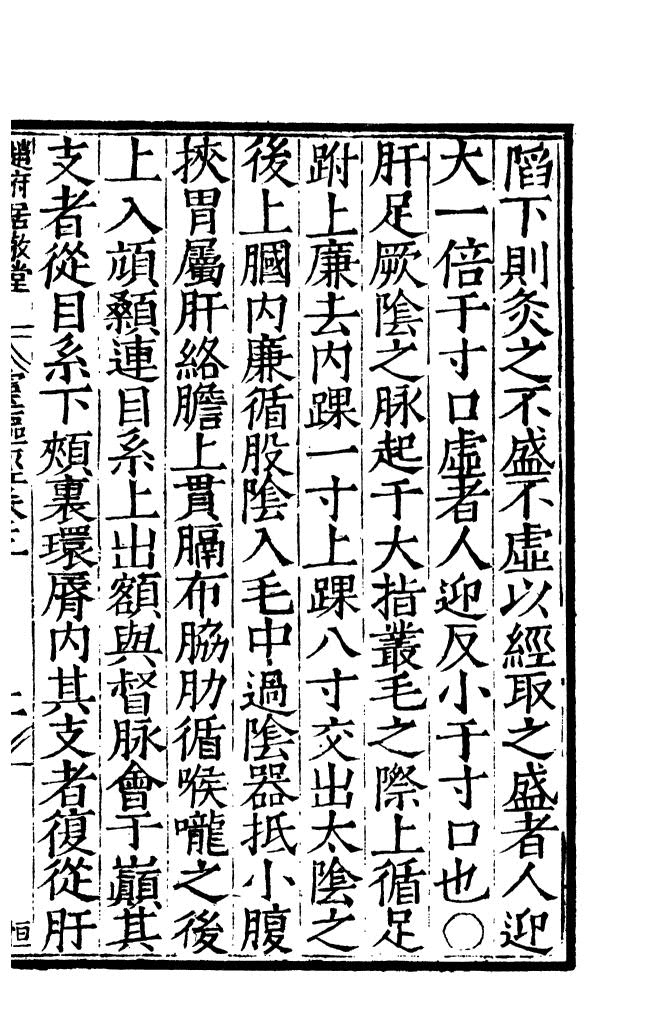 陷下則灸之不盛不虛以經取之盛者人迎
大一倍于寸口虛者人迎反小于寸口也〇
肝足厥陰之脉起于大指叢毛之際上循足
跗上廉去内踝一寸上踝八寸交出太陰之
後上膕内廉循股陰入毛中過陰器抵小腹
挾胃屬肝絡膽上貫膈布脇肋循喉嚨之後
上入頏顙連目系上出額與督脉會于巔其
支者從目系下頰裏環脣内其支者復從肝
趙府居敬堂
恒